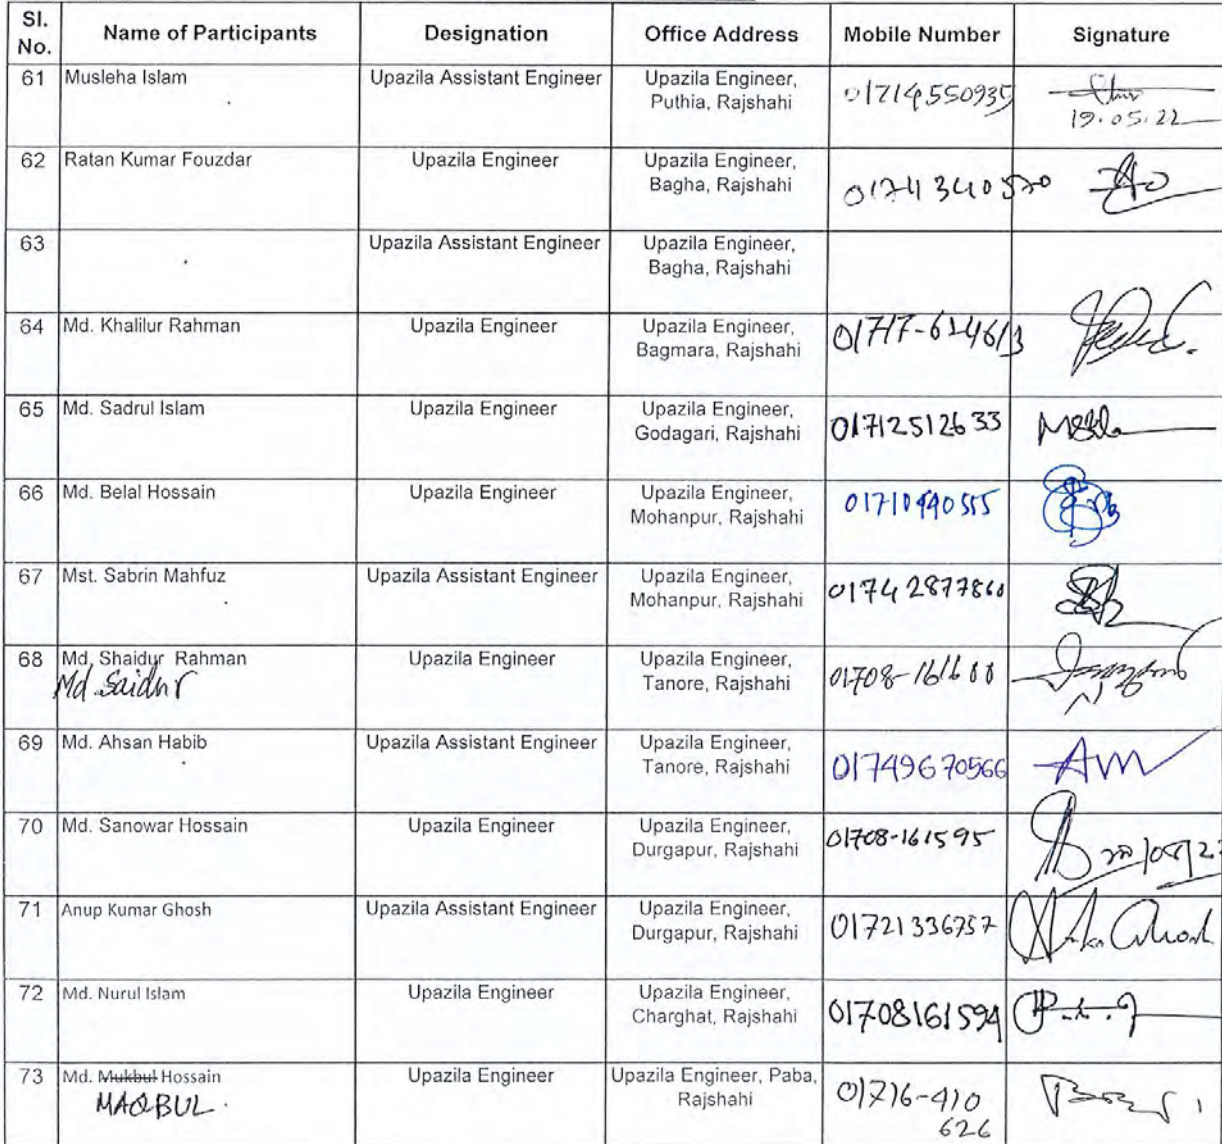 Sl. No. Name of Participants Designation Office Address Mobile Number Signature
61 Musleha Islam Upazila Assistant Engineer Upazila Engineer, Puthia, Rajshahi 01714550935 19.05.22
62 Ratan Kumar Fouzdar Upazila Engineer Upazila Engineer, Bagha, Rajshahi
63 Upazila Assistant Engineer Upazila Engineer, Bagha, Rajshahi
64 Md. Khalilur Rahman Upazila Engineer Upazila Engineer, Bagmara, Rajshahi
65 Md. Sadrul Islam Upazila Engineer Upazila Engineer, Godagari, Rajshahi 01712512633
66 Md. Belal Hossain Upazila Engineer Upazila Engineer, Mohanpur, Rajshahi
67 Mst. Sabrin Mahfuz Upazila Assistant Engineer Upazila Engineer, Mohanpur, Rajshahi 01742877860
68 Md. Shaidur Rahman Upazila Engineer Upazila Engineer, Tanore, Rajshahi
Md. Saidur
69 Md. Ahsan Habib Upazila Assistant Engineer Upazila Engineer, Tanore, Rajshahi 01749670566
70 Md. Sanowar Hossain Upazila Engineer Upazila Engineer, Durgapur, Rajshahi 01708-161595
71 Anup Kumar Ghosh Upazila Assistant Engineer Upazila Engineer, Durgapur, Rajshahi 01721336757
72 Md. Nurul Islam Upazila Engineer Upazila Engineer, Charghat, Rajshahi 01708161594
73 Md. Mukbul Hossain Upazila Engineer Upazila Engineer, Paba, Rajshahi 01716-410 626
MAQBUL.